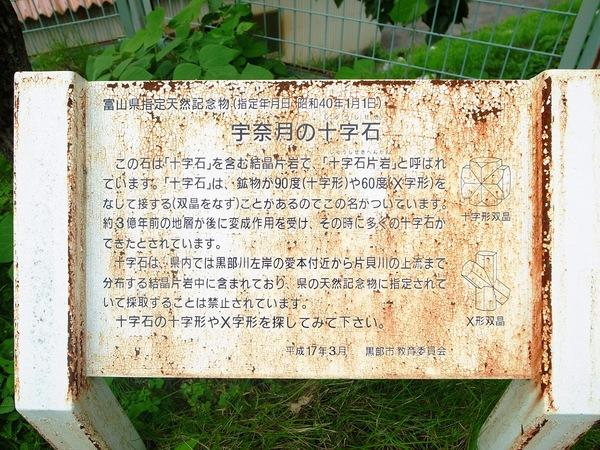 富山県指定天然記念物(指定年月日 昭和40年1月1日)
宇奈月の十字石
この石は「十字石」を含む結晶片岩で、「十字石片岩」と呼ばれ
ています。「十字石」は、鉱物が90度(十字形)や60度(X字形)を
なして接する(双晶をなす)ことがあるのでこの名がついています。
約3億年前の地層が後に変成作用を受け、その時に多くの十字石が
できたとされています。
十字石は、県内では黒部川左岸の愛本付近から片貝川の上流まで
分布する結晶片岩中に含まれており、県の天然記念物に指定されて
いて採取することは禁止されています。
十字石の十字形やX字形を探してみて下さい。
平成17年3月 黒部市教育委員会
十字形双晶
X形双晶